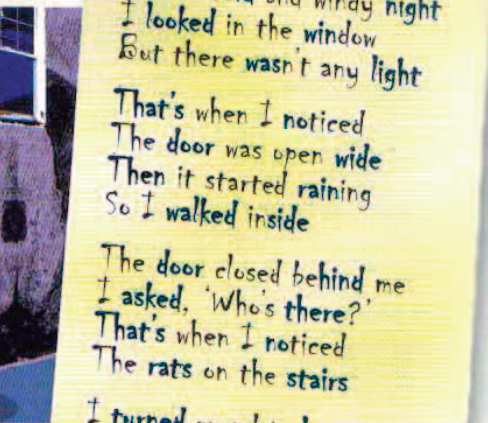 windy night
I looked in the window
But there wasn't any light
That's when I noticed
The door was open wide
Then it started raining
So I walked inside
The door closed behind me
I asked, 'Who's there?'
That's when I noticed
The rats on the stairs
I turned